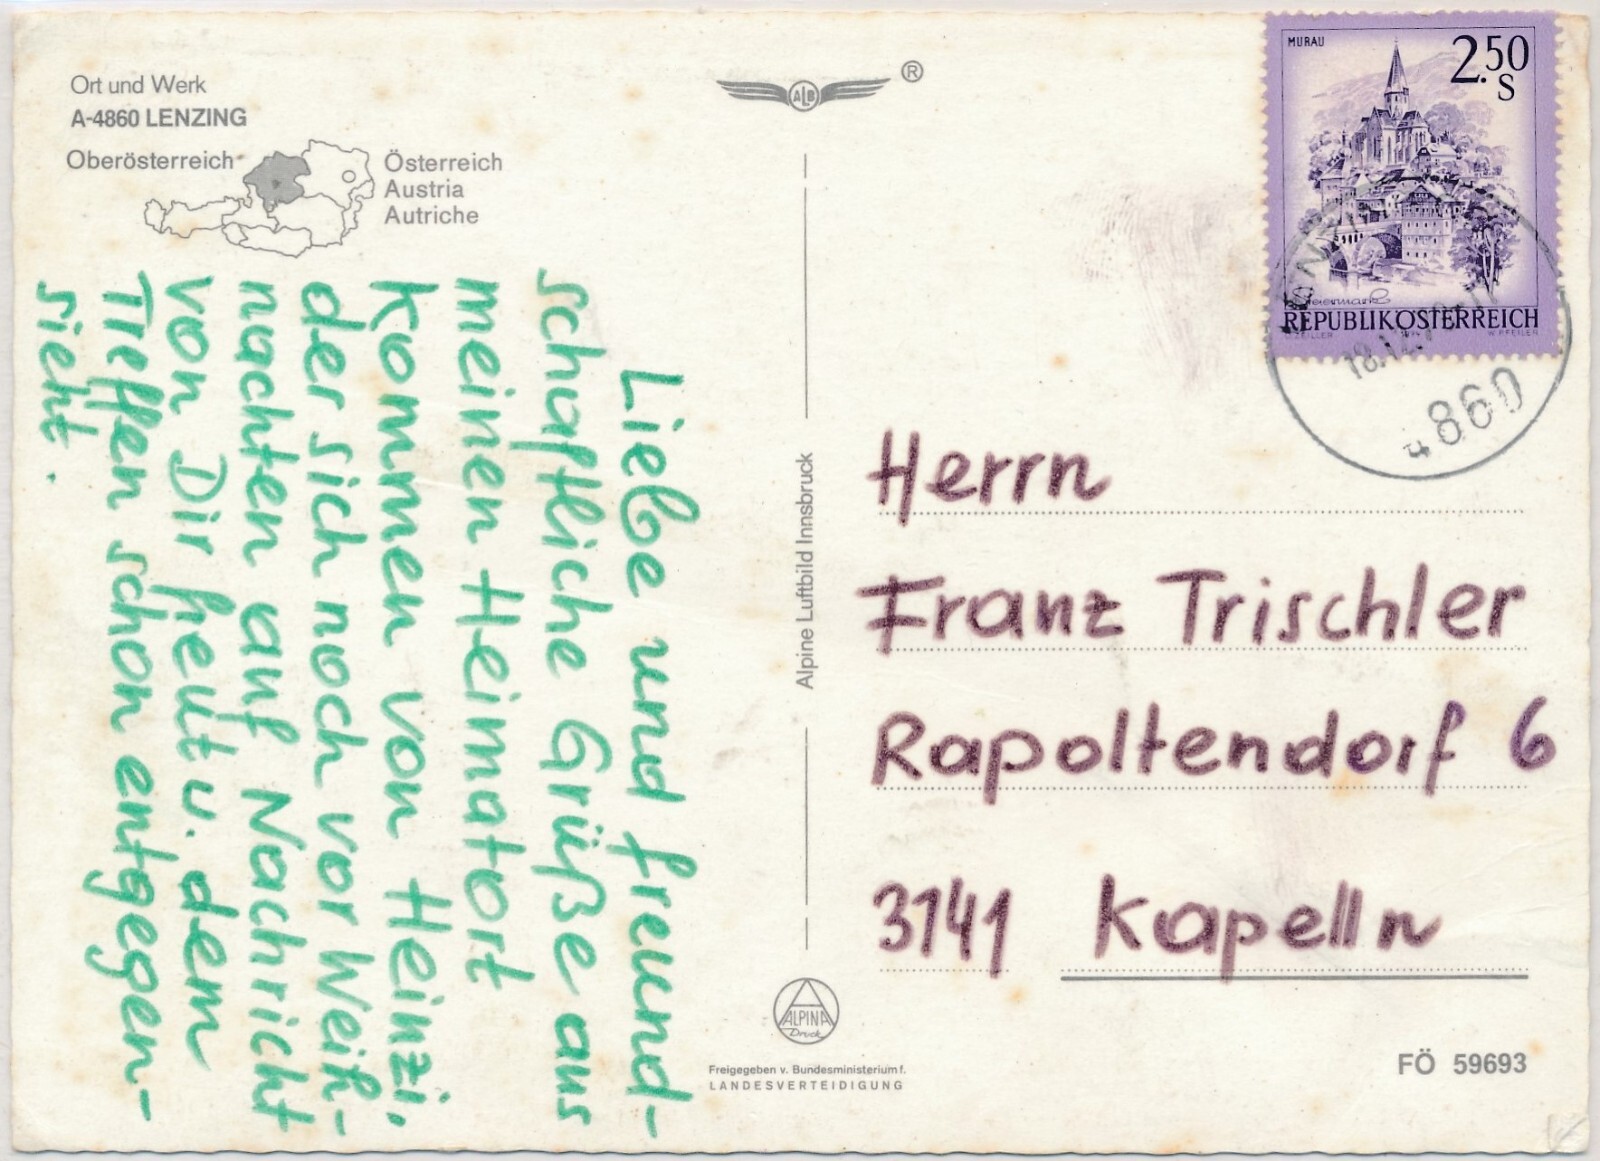 Ort und Werk
A-4860 LENZING
Oberösterreich
Österreich
Austria
Autriche
Liebe und freund-
schaftliche Grüße aus
meinen Heimatort
Kommen von Heinzi,
der sich noch vor Weih-
nachten auf Nachricht
von Dir freut u. dem
Treffen schon entgegen-
sieht.
ALB
®
Alpine Luftbild Innsbruck
ALPINA
Druck
Freigegeben v. Bundesministerium f.
LANDESVERTEIDIGUNG
MURAU
2.50
S
Steiermark
REPUBLIK ÖSTERREICH
O. ZEILLER
W. PFEILER
4860
Herrn
Franz Trischler
Rapoltendorf 6
3141 Kapelln
FÖ 59693